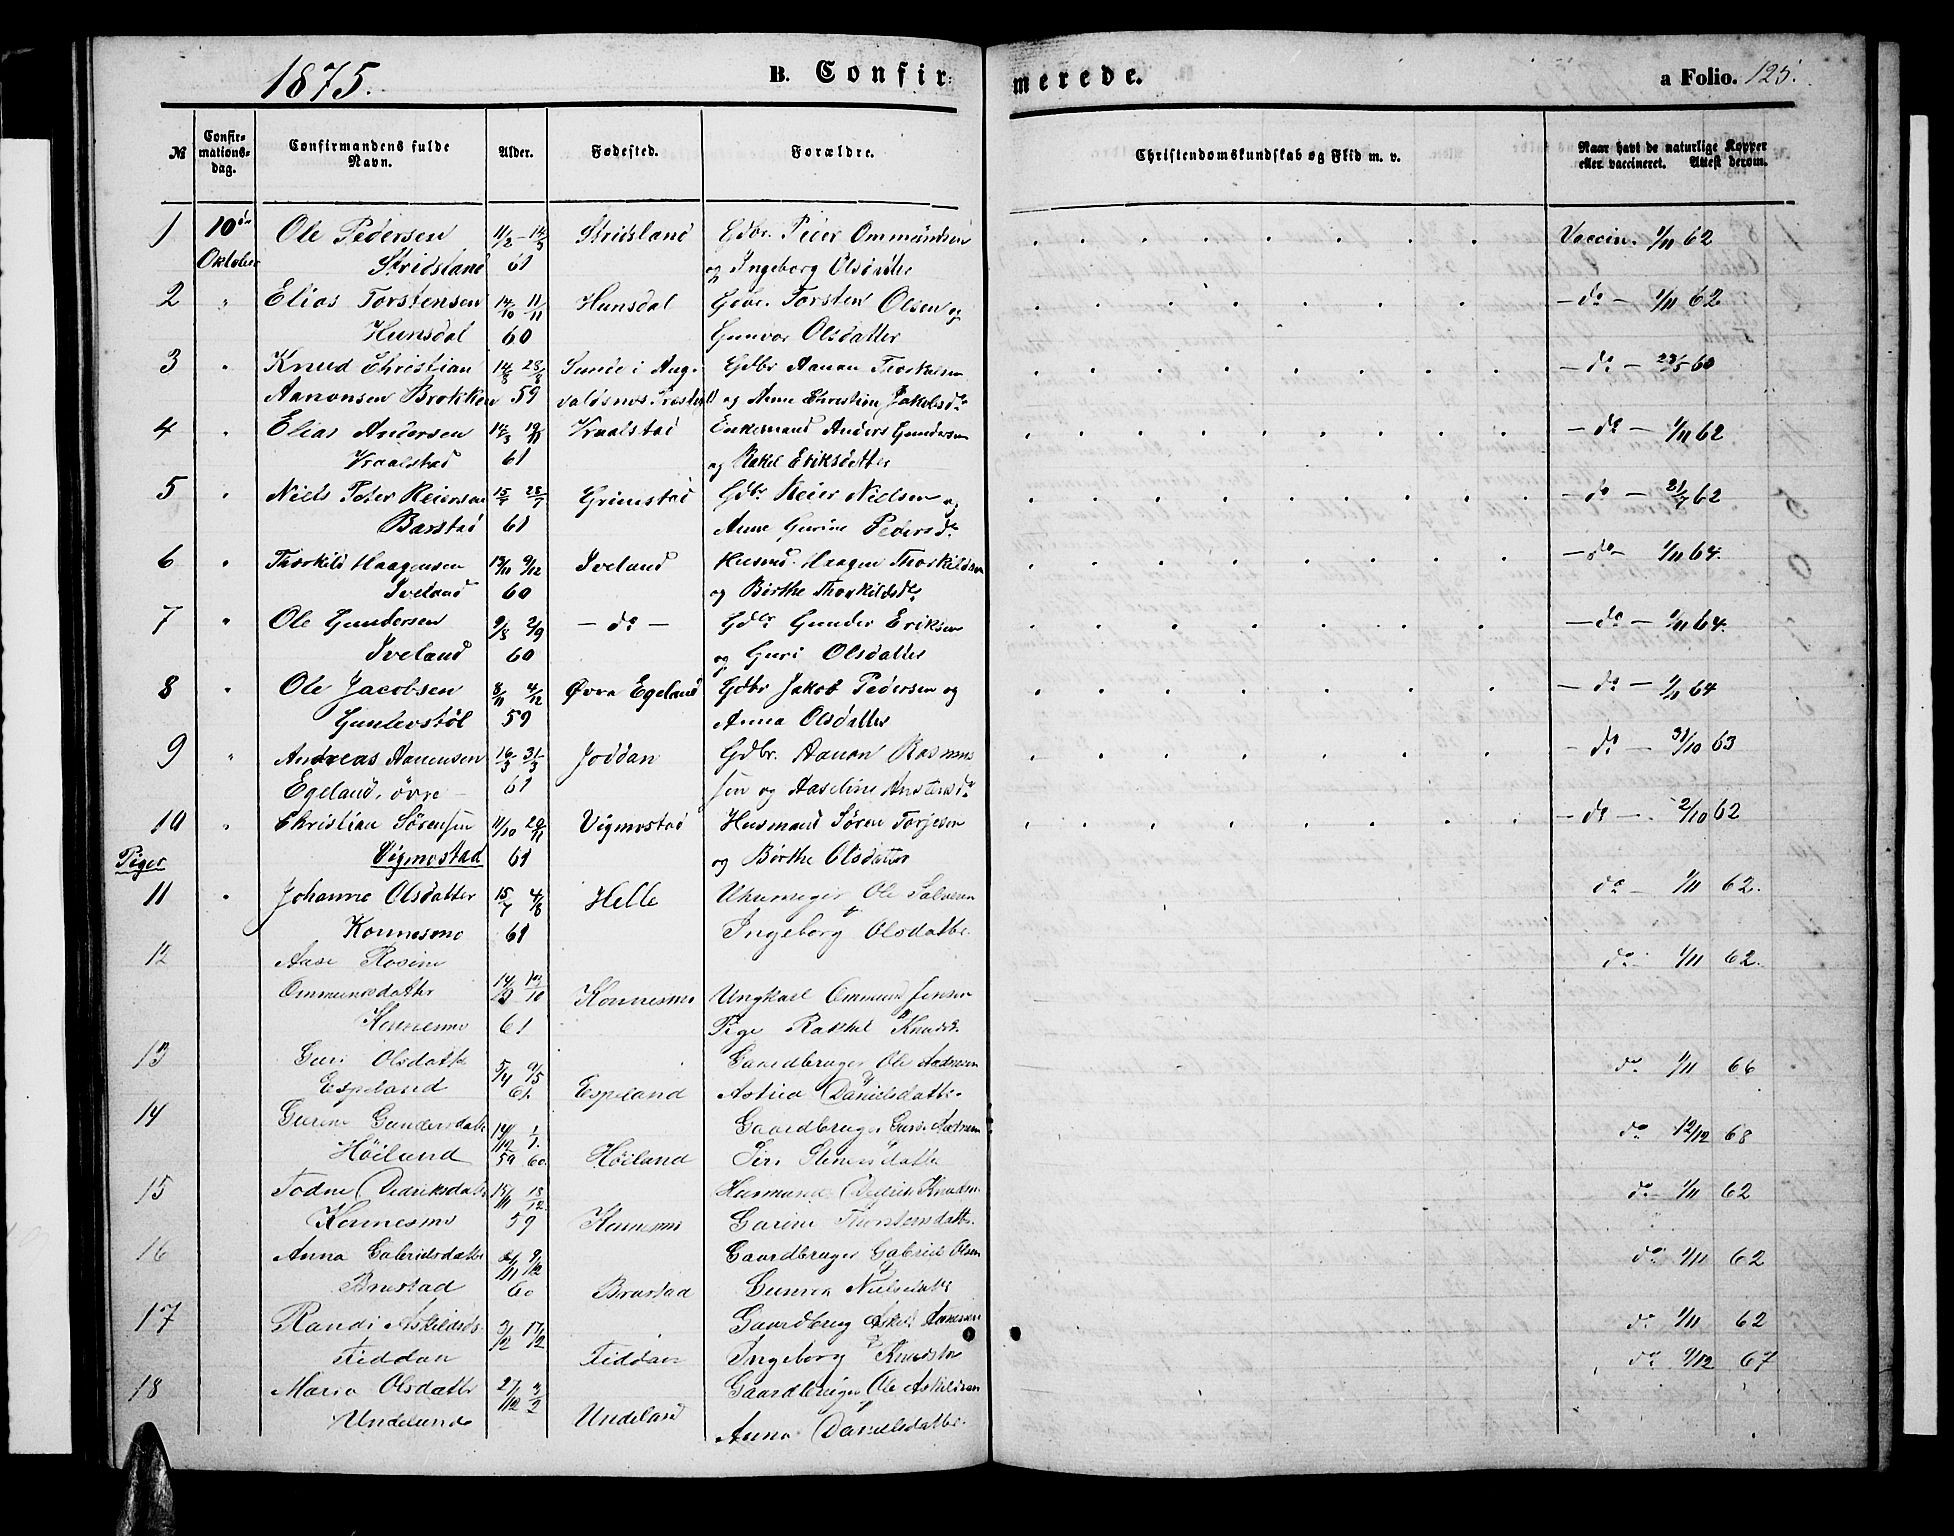 1875. B. Confir- merede. a Folio. 125.
№ Confir-mations-dag. Confirmandens fulde Navn. Alder. Fødested. Forældre. Christendomskundskab og Flid m. v. Naar havt de naturlige Kopper eller vaccineret. Attest derom.
1 10de Ole Pedersen 11/2 - 14/3 Stridsland Gdbr. Peter Ommundsen Vaccin. 1/11 62
Oktober Stridsland 61 og Ingeborg Olsdatter
2 " Elias Torstensen 14/10 11/11 Hunsdal Gdbr. Torsten Olsen og - do - 1/11 62
Hunsdal 60 Gunvor Olsdatter
3 " Knud Christian 14/8 28/8 Sunde i Aug- Gdbr Aanon - do - 60
Aanonsen Brokken 59 og Anne Christine Jakobsdr
4 " Elias Andersen 14/3 Kraalstad Enkemand Anders Gundersen - do - 1/11 62
Kraalstad 61 og Rakel Eriksdatter
5 " Niels Peter Reiersen 15/7 28/7 Grimstad Gdbr Reier Nielsen og - do - 21/7 62
Barstad 61 Anne Gurine Pedersdr
6 " Thorkild Haagensen 13/11 9/12 Iveland Husmd. Haagen Thorkildsen - do - 1/11 64.
Iveland 60 og Børthe Thorkildsdr
7 " Ole Gundersen 9/8 2/9 - do - Gdbr Gunder Eriksen - do - 1/11 64.
Iveland 60 og Guri Olsdatter
8 " Ole Jacobsen 8/11 4/12 Øvre Egeland Gdbr Jakob Pedersen og - do - 1/11 64
Gunlevstøl 59 Anna Olsdatter
9 " Andreas Aanensen 16/3 31/3 Joddan Gdbr. Aanon Rasmus - do - 31/10 63
Egeland, øvre - 61 sen og Aaseline
10 " Christian Sørensen 11/10 20/11 Vigmostad Husmand Søren Torjesen - do - 2/10 62
Piger Vigmostad 61 og Børthe Olsdatter
11 " Johanne Olsdatter 15/7 4/8 Helle Ole Salvesen do - 1/11 62.
Konnesmo 61 Ingeborg Olsdatter
12 Aase Rosine do - 1/11 62.
Ommundsdatter Konnesmo Ungkarl Ommund Jensen
Konnesmo 61 Pige Rakkel Knudsd.
13 Guri Olsdatter 5/4 9/5 Gaardbruger Ole do 1/11 66
Espeland 61. Espeland Daniels datter
14 Gurine Gundersdatter 14/12 1/1. Gaardbruger do 12/12 68
Høiland 59 60. Høiland Siri
15 Todne Dedriksdatter Husmand Dedrik Knudsen do - 1/11 62
Konnesmo 59 Konnesmo Gurine Thorstensdatter
16 Anna Gabrielsdatter 9/12 Gaardbruger Gabriel Olsen do 1/11 62
Brustad 60 Brustad Gunvor Nielsdatter
17 Randi Askildsd. 3/12 17/12 Gaardbrug Askild Aanensen do 1/11 62
Fiddan Fiddan Ingeborg do 1/12 67
18 Maria Olsdatter 27/12 3/2 Gaardbruger Ole Askildsen
Undeland Undeland Anna Danielsdatter